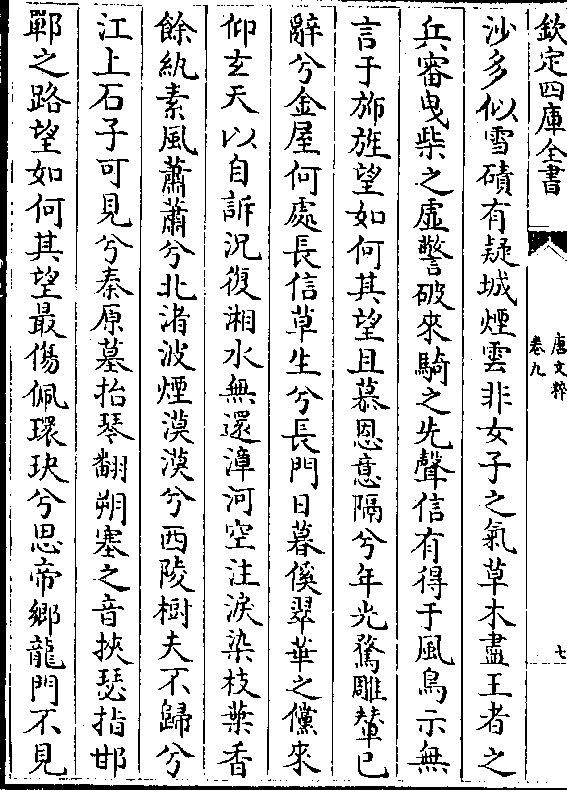 欽定四庫全書
唐文粹
卷九
七
沙多似雪磧有疑城煙雲非女子之氣草木盡王者之
兵審曳柴之虛警破來騎之先聲信有得于風鳥示無
言于斾旌望如何其望且慕恩意隔兮年光騖雕輦已
辭兮金屋何處長信草生兮長門日暮傒翠華之儻來
仰玄天以自訴況復湘水無還漳河空注淚染枝葉香
餘紈素風蕭蕭兮北渚波煙漠漠兮西陵樹夫不歸兮
江上石子可見兮秦原墓抬琴翻朔塞之音挾瑟指邯
鄲之路望如何其望最傷佩環玦兮思帝鄉龍門不見